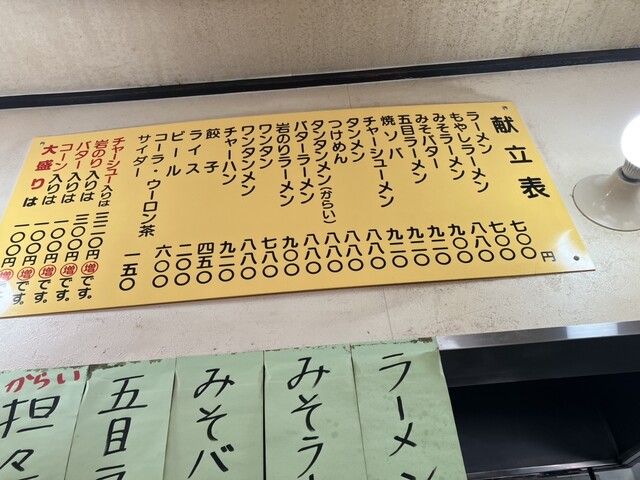 献立表
ラーメン 七〇〇円
もやしラーメン 七〇〇
みそラーメン 八〇〇
みそバター 九〇〇
五目ラーメン 九二〇
焼ソバ 九二〇
チャーシューメン 九二〇
タンメン 八八〇
つけめん 八八〇
タンタンメン(からい) 八八〇
バターラーメン 八八〇
岩のりラーメン 九〇〇
ワンタン 七八〇
ワンタンメン 八八〇
チャーハン 九二〇
餃子 四五〇
ライス 二〇〇
ビール 六〇〇
コーラ・ウーロン茶
サイダー 一五〇
チャーシュー入りは 三二〇円増です。
岩のり入りは 三〇〇円増です。
バター入りは 一〇〇円増です。
コーン入りは 一〇〇円増です。
大盛りは 一〇〇円増です。
ラーメン
みそラー
みそバ
五目ラ
からい
担々